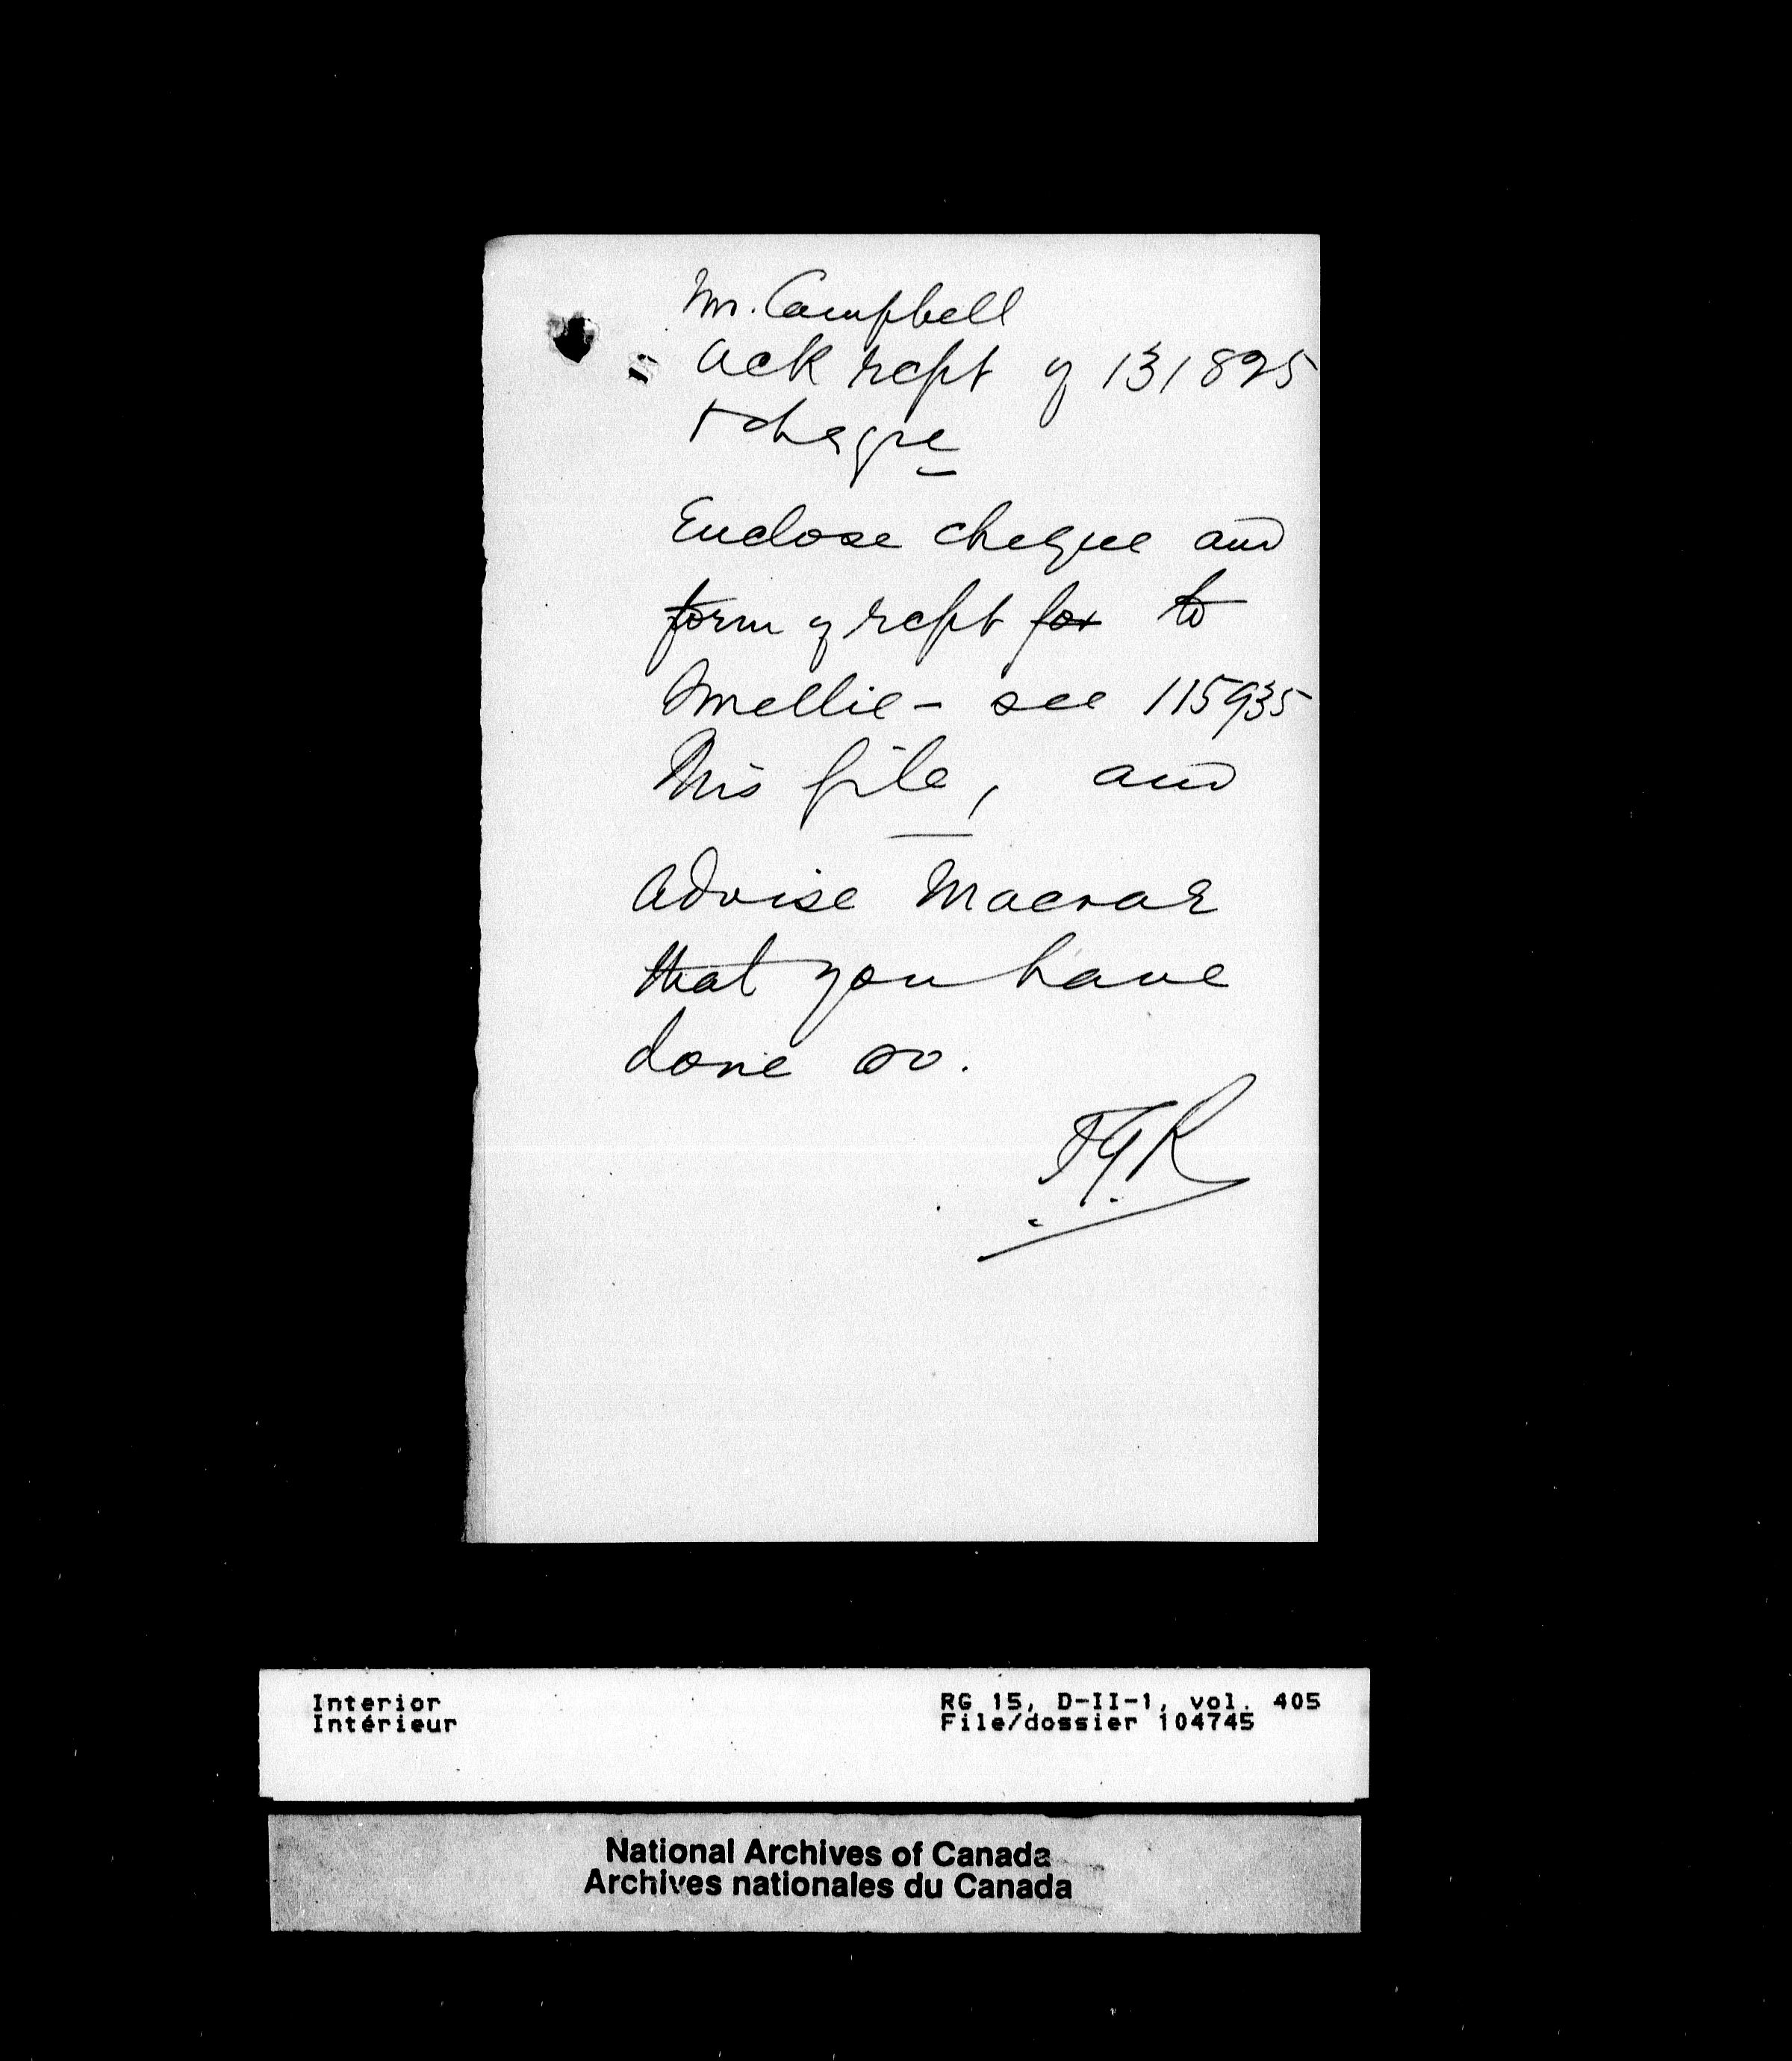 Mr. Campbell
Ack rcpt of 131825
+ cheque
Enclose cheque and
form of rcpt for to
Smellie - see 115935
this file, and
Advise Macrae
that you have
done so.
Interior
Intérieur
RG 15, D-II-1, vol. 405
File/dossier 104745
National Archives of Canada
Archives nationales du Canada